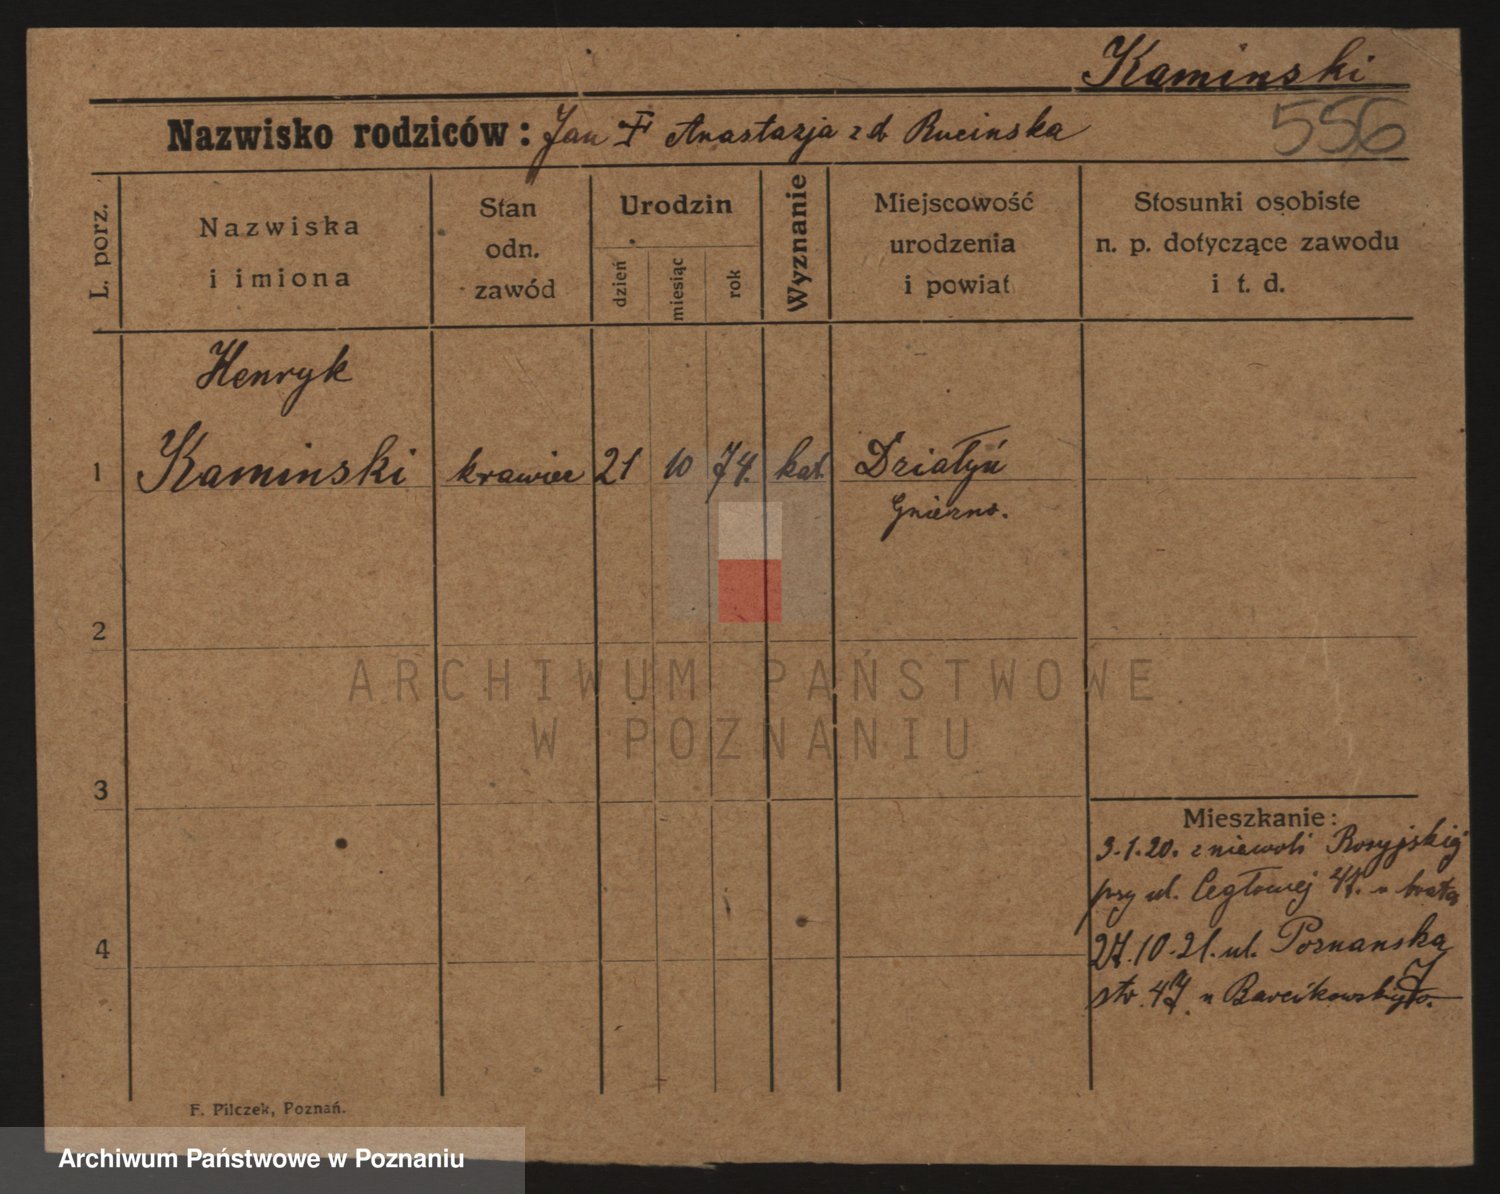 Kaminski
Nazwisko rodziców: Jan Anastazja z d. Rucinska
556
L. porz.
Nazwiska
i imiona
Stan
odn.
zawód
Urodzin
dzień
miesiąc
rok
Wyznanie
Miejscowość
urodzenia
i powiat
Stosunki osobiste
n. p. dotyczące zawodu
i t. d.
Henryk
1 Kaminski krawiec 21 10 74. kat. Działyń
Gniezno.
2
ARCHIWUM PAŃSTWOWE
W POZNANIU
3
Mieszkanie:
3.1.20. z niewoli Rosyjskiej
przy ul. Cegłowej 47. u brata
4
27.10.21. ul. Poznanska
str. 47. u Barcikowskiego.
F. Pilczek, Poznań.
Archiwum Państwowe w Poznaniu